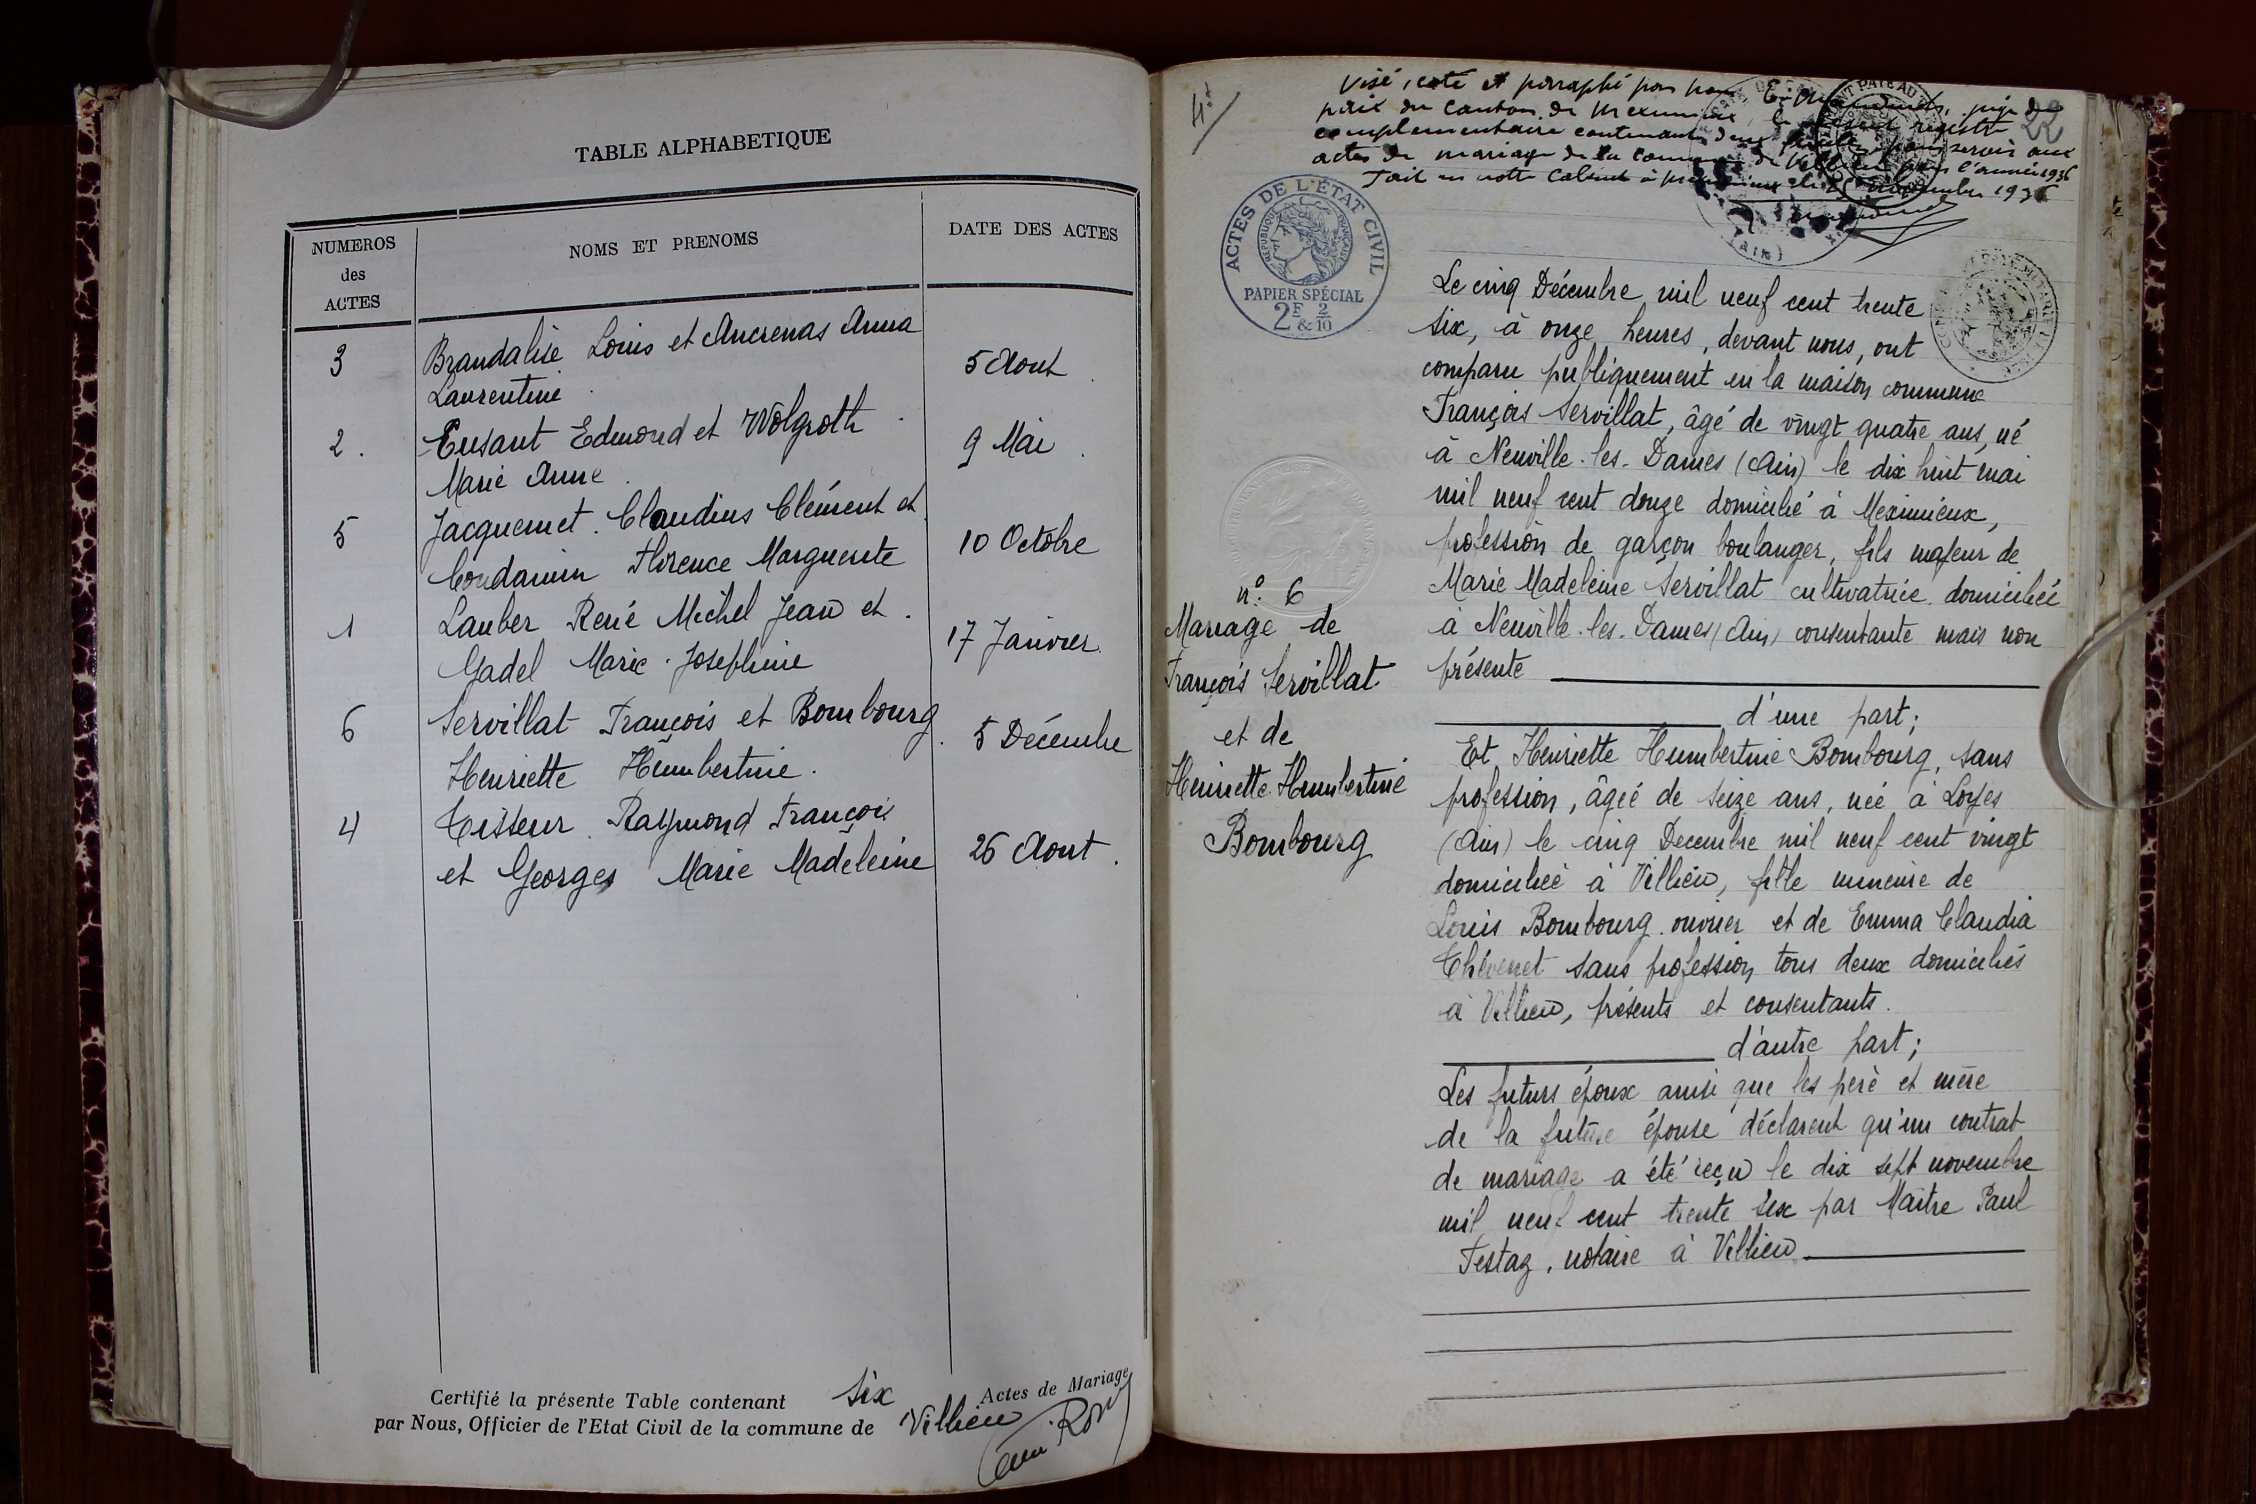 TABLE ALPHABETIQUE
NUMEROS des ACTES
NOMS ET PRENOMS
DATE DES ACTES
3 Brandalise Louis et Ancrenas Anna 5 Aout
Laurentine
2. Eusant Edmond et Wolgroth 9 Mai
Marie Anne
5 Jacquemet Claudius Clément et 10 Octobre
Condamin Florence Marguerite
1 Lauber René Michel Jean et 17 Janvier
Gadel Marie Josephine
6 Servillat François et Bombourg 5 Décembre
Henriette Humbertine.
4 Tisseur Raymond François 26 Aout.
et Georges Marie Madeleine
Certifié la présente Table contenant six Actes de Mariage
par Nous, Officier de l'Etat Civil de la commune de Villieu
22
Visé, coté et paraphé par nous juge de
paix du canton de Meximieux, le registre
complementaire contenant deux servir aux
actes de mariage de la commune de Villieu l'année 1936
Fait en notre Cabinet à novembre 1936
ACTES DE L'ÉTAT CIVIL
RÉPUBLIQUE FRANÇAISE
PAPIER SPÉCIAL
2F & 2/10
(AIN)
n° 6
Mariage de
François Servillat
et de
Henriette Humbertine
Bombourg
Le cinq Décembre mil neuf cent trente
six, à onze heures, devant nous, ont
comparu publiquement en la maison commune
François Servillat, âgé de vingt quatre ans, né
à Neuville-les-Dames (Ain) le dix huit mai
mil neuf cent douze domicilié à Meximieux,
profession de garçon boulanger, fils majeur de
Marie Madeleine Servillat cultivatrice domiciliée
à Neuville-les-Dames (Ain) consentante mais non
présente
d'une part;
Et Henriette Humbertine Bombourg, sans
profession, âgée de seize ans, née à Loyes
(Ain) le cinq Decembre mil neuf cent vingt
domiciliée à Villieu, fille mineure de
Louis Bombourg ouvrier et de Emma Claudia
Thévenet sans profession tous deux domiciliés
à Villieu, présents et consentants.
d'autre part;
Les futurs époux ainsi que les père et mère
de la future épouse déclarent qu'un contrat
de mariage a été reçu le dix sept novembre
mil neuf cent trente six par Maître Paul
Festaz, notaire à Villieu